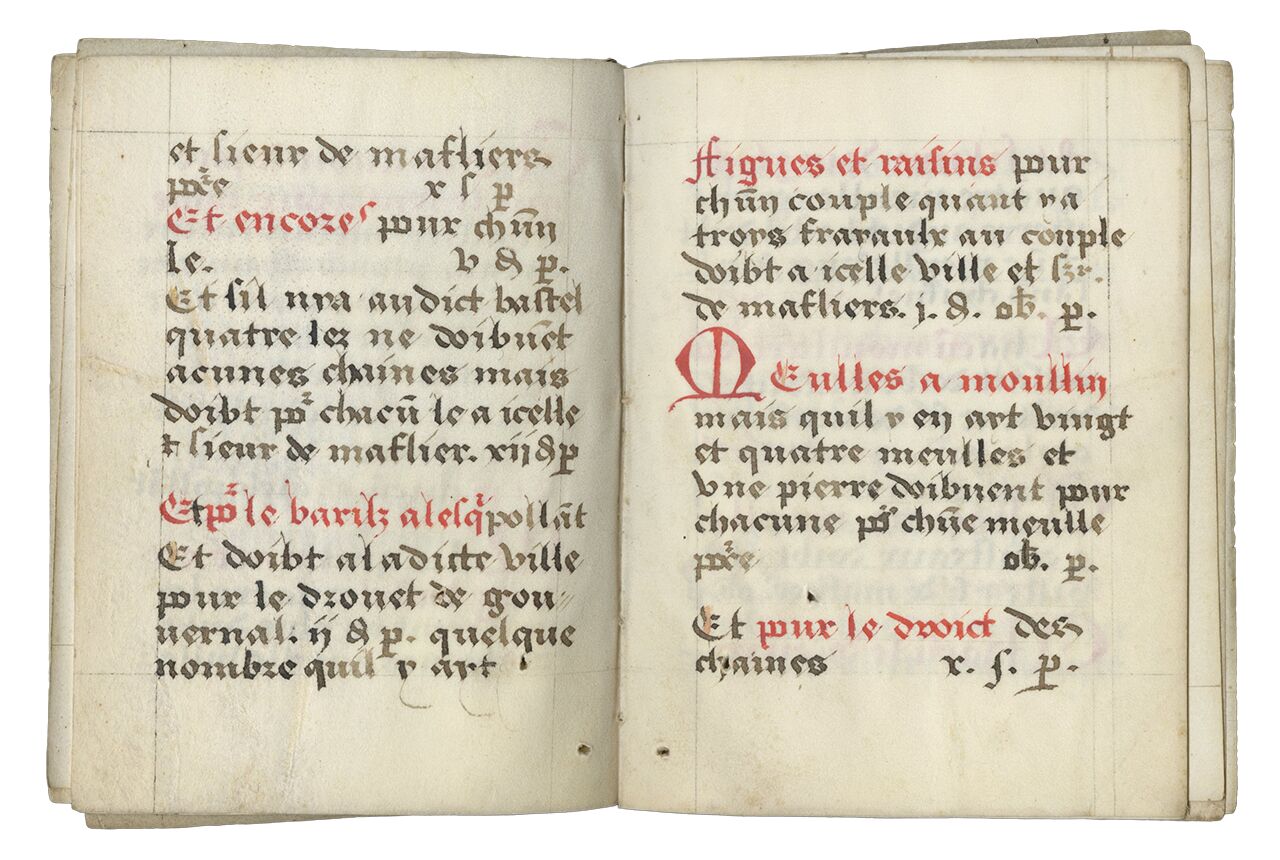 et sieur de mafliers
põre x s p
Et encores pour chũn
le. v d p.
Et sil nya audict bastel
quatre lez ne doibuẽt
acunes chaines mais
doibt por chacũ le a icelle
et sieur de maflier. xij d p
Et por le barilz alesqr pollãt
Et doibt a ladicte ville
pour le drouet de gou-
uernal. ij d p. quelque
nombre quil y ayt
ffigues et raisins pour
chũn couple quant y a
troys frayaulx au couple
doibt a icelle ville et sr.
de mafliers. j. d. ob. p.
Meulles a moullin
mais quil y en ayt vingt
et quatre meulles et
vne pierre doibuent pour
chacune por chũe meulle
põre ob. p.
Et pour le droict des
chaines x. s. p.